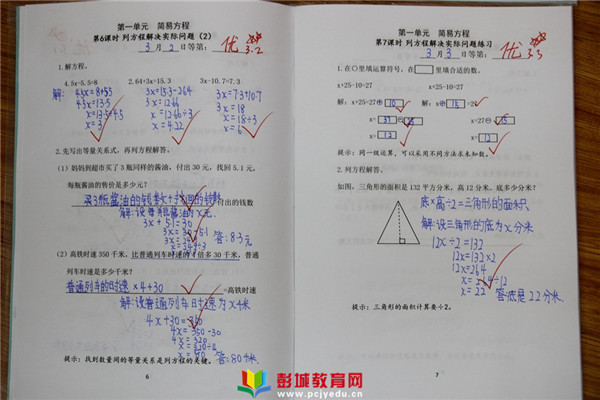 第一单元 简易方程
第6课时 列方程解决实际问题(2)
3月2日等第: 优 3.2
1.解方程。
4.5x-5.5=8
2.64+3x=15.3
3x-10.7=7.3
解:
4.5x=8+5.5
4.5x=13.5
x=13.5÷4.5
x=3
3x=15.3-2.64
3x=12.66
x=12.66÷3
x=4.22
3x=7.3+10.7
3x=18
x=18÷3
x=6
2.先写出等量关系式,再列方程解答。
(1)妈妈到超市买了3瓶同样的酱油,付出30元,找回5.1元,
每瓶酱油的售价是多少元?
买3瓶酱油的钱数+找回的钱数=付出的钱数
解:设每瓶酱油x元。
3x+5.1=30
3x=30-5.1
答:8.3元
(2)高铁时速350千米,比普通列车时速的4倍多30千米,普通
列车时速是多少千米?
普通列车的时速×4+30=高铁时速
解:设普通列车时速为x千米
4x+30=350
4x=350-30
4x=320
x=320÷4
x=80
答:80千米.
提示:找到数量间的等量关系是列方程的关键。
6
第一单元 简易方程
第7课时 列方程解决实际问题练习
3月3日等第: 优 3.3
1.在○里填运算符号,在□里填合适的数。
x+25-10=27
x+25-10=27
解:x+25=27+10
解:x+15=27
x=37-25
x=27-15
x=12
x=12
提示:同一级运算,可以采用不同方法求未知数。
2.列方程解答。
如图,三角形的面积是132平方分米,高12分米。底多少分米?
底×高÷2=三角形的面积
解:设三角形的底为x分米
12x÷2=132
12x=132×2
12x=264
x=264÷12
x=22
答:底是22分米.
提示:三角形的面积计算要÷2。
7
彭城教育网
www.pcjyedu.cn